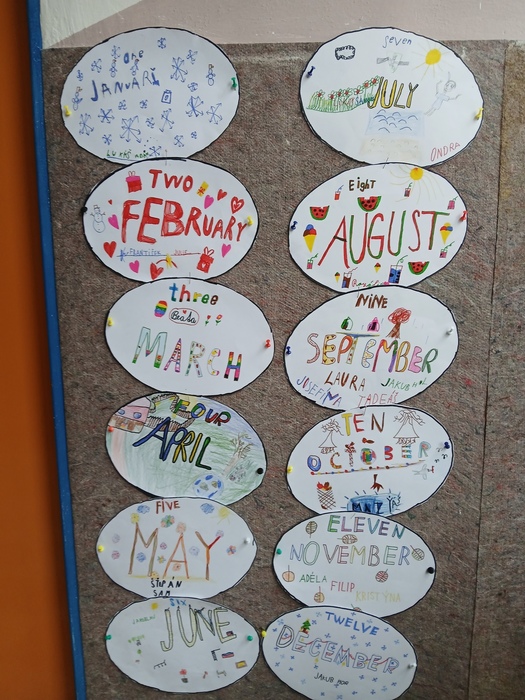 one
JANUARY
TWO
FEBRUARY
FRANTIŠEK
three
Beáta
MARCH
FOUR
APRIL
FIVE
MAY
ŠTĚPÁN
SAM
SIX
JUNE
seven
JULY
ONDRA
EigHT
AUGUST
NINE
SEPTEMBER
LAURA
JOSEFINA
TADEÁŠ
JAKUB
TEN
OCTOBER
ELEVEN
NOVEMBER
ADÉLA
FILIP
KRISTÝNA
TWELVE
DECEMBER
JAKUB